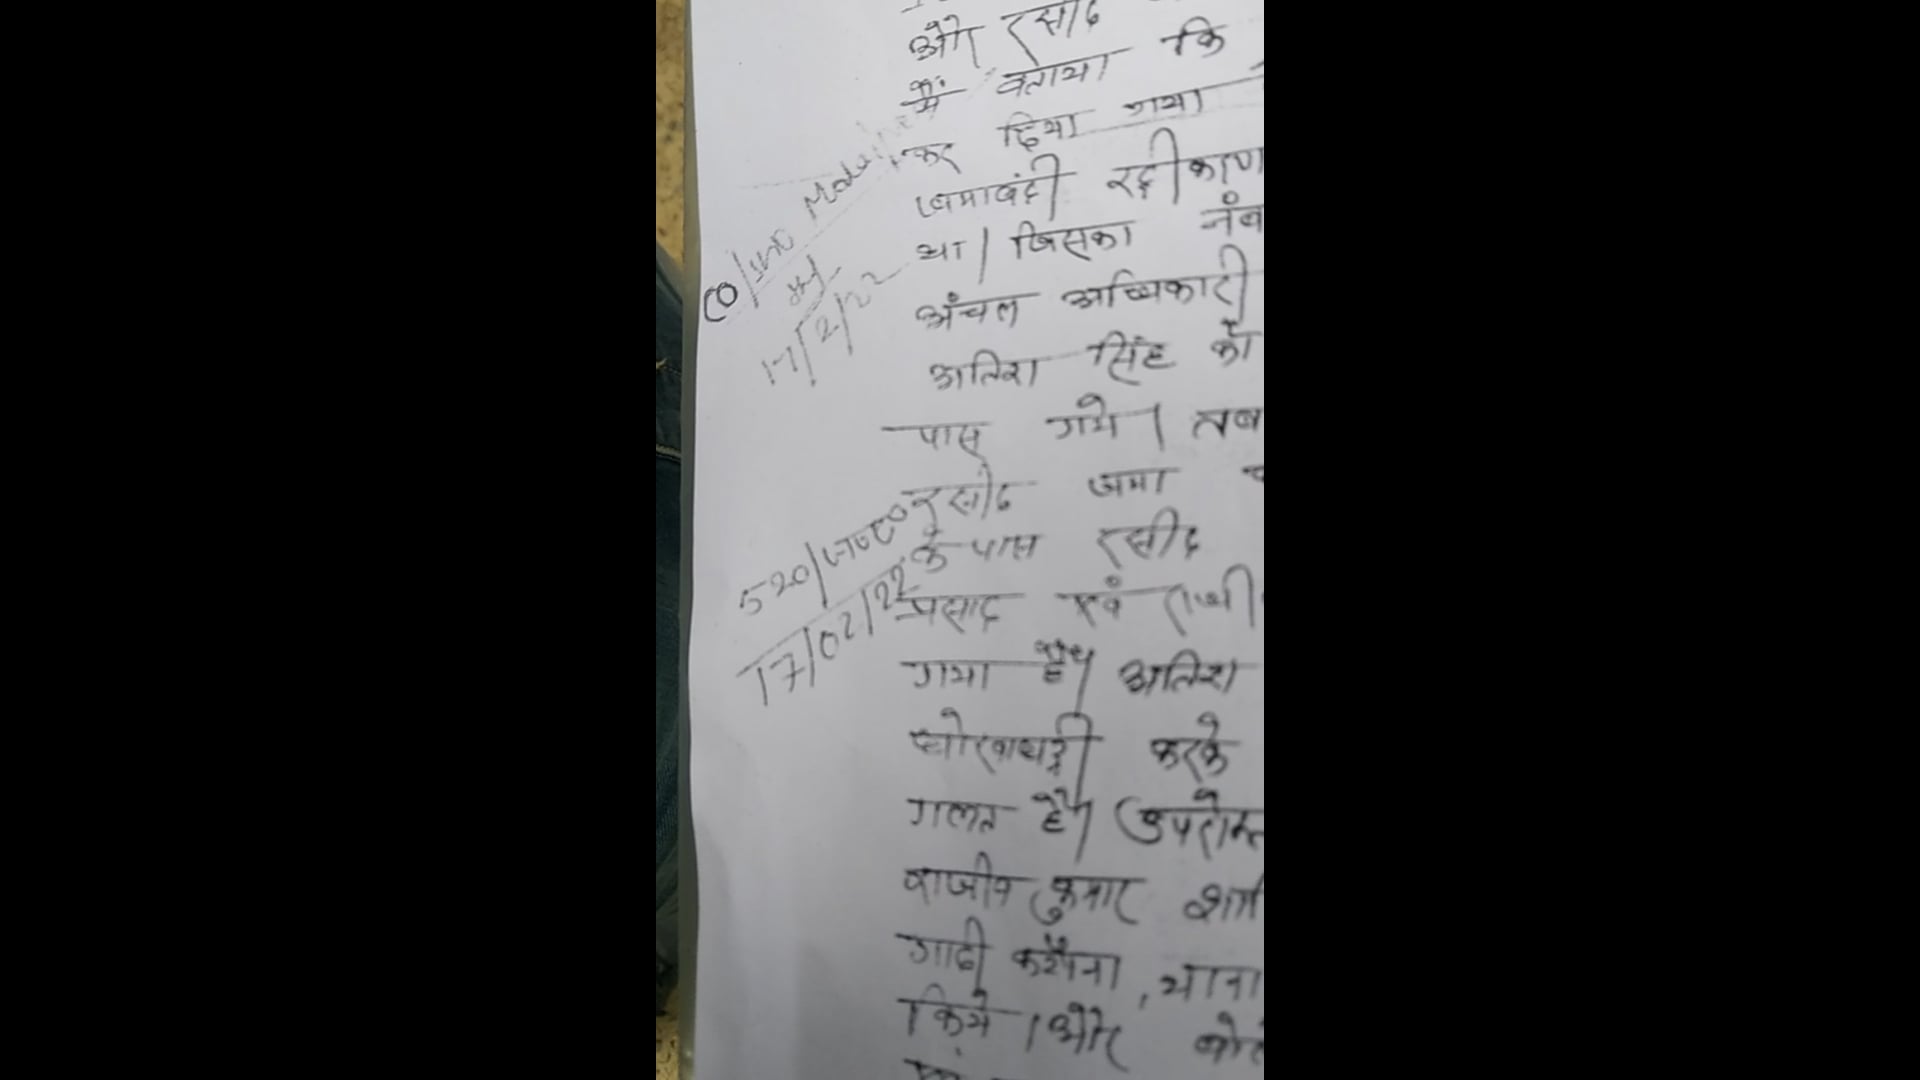 और रसीद
में बताया कि
कर दिया गया
जमाबंदी रद्दीकरण
था। जिसका नंब
CO/
17/2/22
अंचल अधिकारी
अतिश सिंह को
पास गये। तब
रसीद जमा
के पास रसीद
520/
17/02/22
प्रसाद एवं राजी
गया है। अतिश
धोखाधड़ी करके
गलत है। उपरोक्त
राजीव कुमार शर्मा
गादी करौना, थाना
किये। और